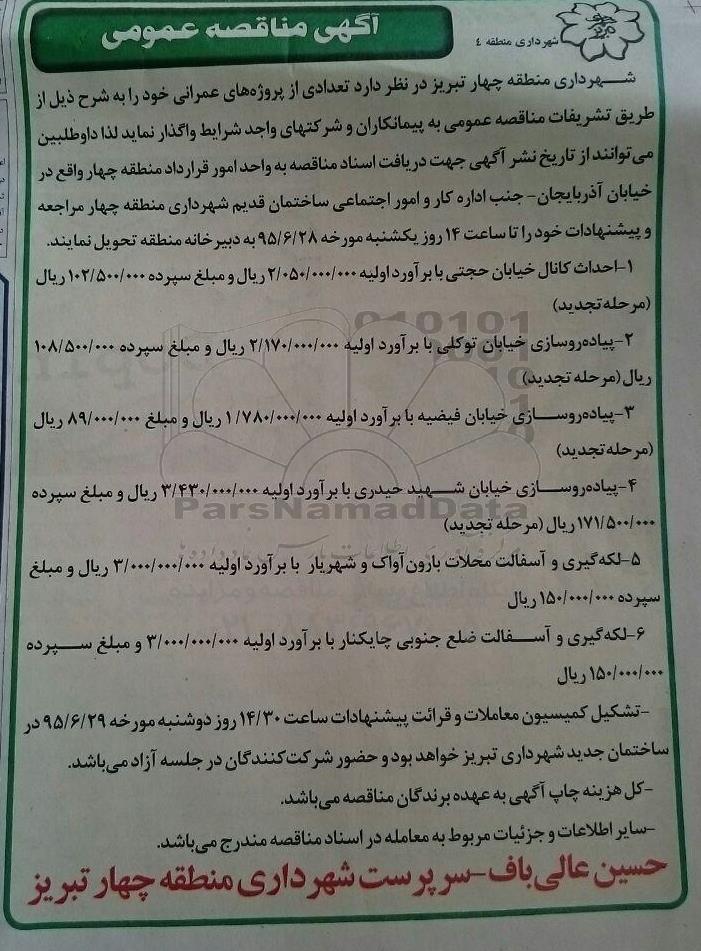 آگهی مناقصه عمومی
شهرداری منطقه ٤
شهرداری منطقه چهار تبریز در نظر دارد تعدادی از پروژه‌های عمرانی خود را به شرح ذیل از
طریق تشریفات مناقصه عمومی به پیمانکاران و شرکتهای واجد شرایط واگذار نماید لذا داوطلبین
می‌توانند از تاریخ نشر آگهی جهت دریافت اسناد مناقصه به واحد امور قرارداد منطقه چهار واقع در
خیابان آذربایجان- جنب اداره کار و امور اجتماعی ساختمان قدیم شهرداری منطقه چهار مراجعه
و پیشنهادات خود را تا ساعت ۱۴ روز یکشنبه مورخه ۹۵/۶/۲۸ به دبیرخانه منطقه تحویل نمایند.
۱-احداث کانال خیابان حجتی با برآورد اولیه ۲/۰۵۰/۰۰۰/۰۰۰ ریال و مبلغ سپرده ۱۰۲/۵۰۰/۰۰۰ ریال
(مرحله تجدید)
۲-پیاده‌روسازی خیابان توکلی با برآورد اولیه ۲/۱۷۰/۰۰۰/۰۰۰ ریال و مبلغ سپرده ۱۰۸/۵۰۰/۰۰۰
ریال (مرحله تجدید)
۳-پیاده‌روسازی خیابان فیضیه با برآورد اولیه ۱/۷۸۰/۰۰۰/۰۰۰ ریال و مبلغ ۸۹/۰۰۰/۰۰۰ ریال
(مرحله تجدید)
۴-پیاده‌روسازی خیابان شهید حیدری با برآورد اولیه ۳/۴۳۰/۰۰۰/۰۰۰ ریال و مبلغ سپرده
۱۷۱/۵۰۰/۰۰۰ ریال (مرحله تجدید)
ParsNamadData
۵-لکه‌گیری و آسفالت محلات بارون‌آواک و شهریار با برآورد اولیه ۳/۰۰۰/۰۰۰/۰۰۰ ریال و مبلغ
سپرده ۱۵۰/۰۰۰/۰۰۰ ریال
۶-لکه‌گیری و آسفالت ضلع جنوبی چایکنار با برآورد اولیه ۳/۰۰۰/۰۰۰/۰۰۰ و مبلغ سپرده
۱۵۰/۰۰۰/۰۰۰ ریال
-تشکیل کمیسیون معاملات و قرائت پیشنهادات ساعت ۱۴/۳۰ روز دوشنبه مورخه ۹۵/۶/۲۹ در
ساختمان جدید شهرداری تبریز خواهد بود و حضور شرکت‌کنندگان در جلسه آزاد می‌باشد.
-کل هزینه چاپ آگهی به عهده برندگان مناقصه می‌باشد.
-سایر اطلاعات و جزئیات مربوط به معامله در اسناد مناقصه مندرج می‌باشد.
حسین عالی‌باف-سرپرست شهرداری منطقه چهار تبریز